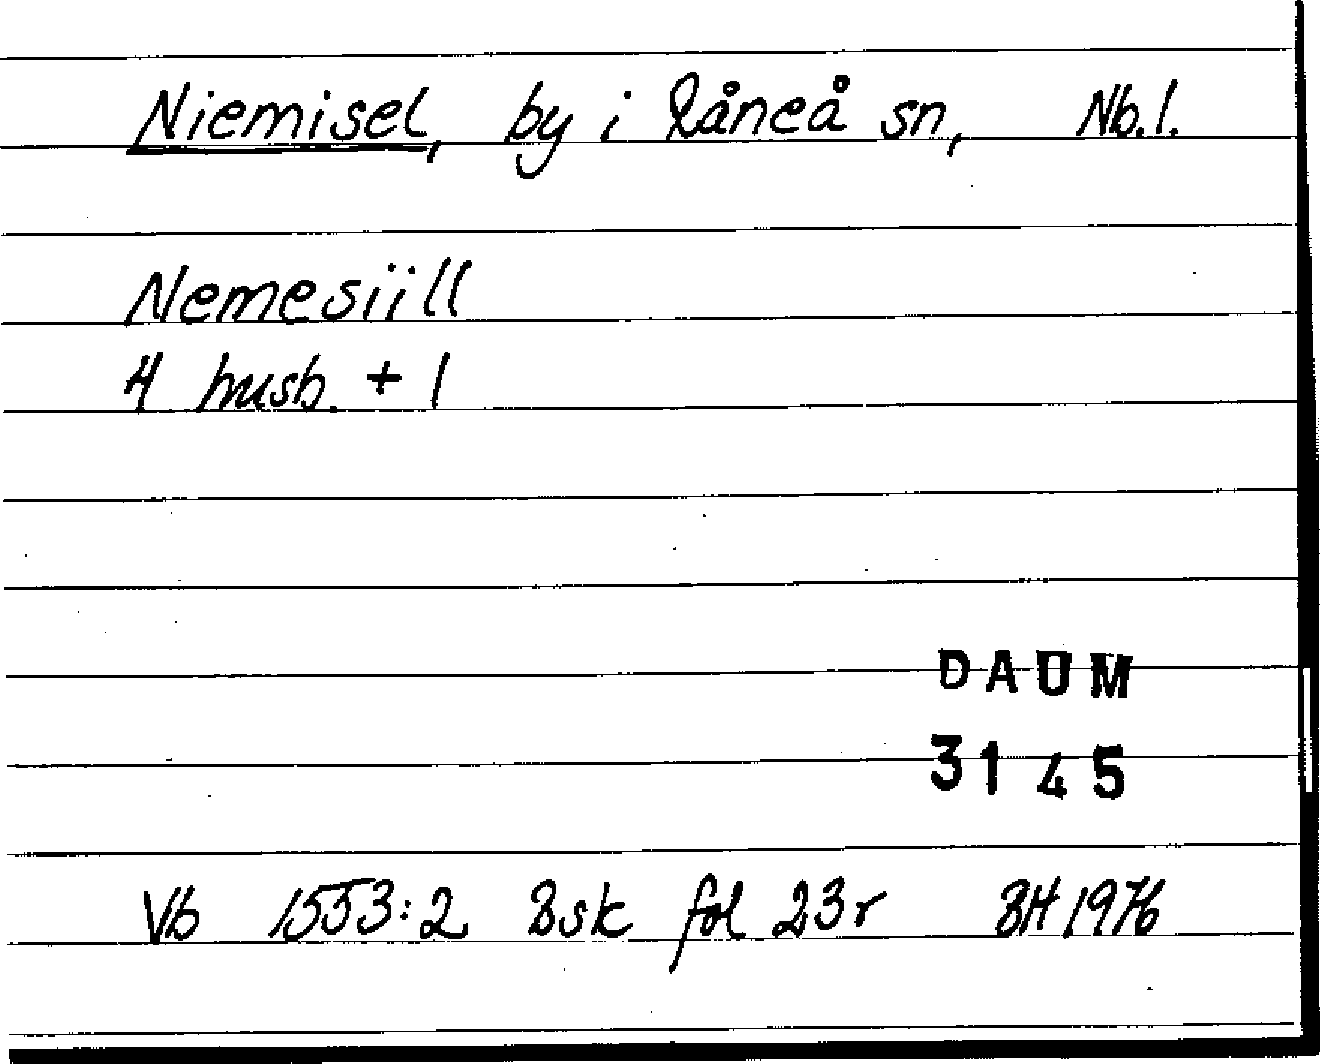 Niemisel, by i Råneå sn, Nb.l.
Nemesiill
4 husb. + 1
DAUM
3145
Vb 1553:2 Bsk fol 23r BH 1976